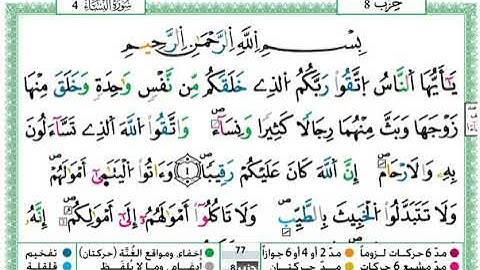 4 سُورَةُ النِّسَاءِ حزب 8
بِسْمِ اللَّهِ الرَّحْمَٰنِ الرَّحِيمِ
يَٰٓأَيُّهَا النَّاسُ اتَّقُوا رَبَّكُمُ الَّذِے خَلَقَكُم مِّن نَّفْسٍ وَٰحِدَةٍ وَخَلَقَ مِنْهَا
زَوْجَهَا وَبَثَّ مِنْهُمَا رِجَالًا كَثِيرًا وَنِسَآءً ۖ وَاتَّقُوا اللَّهَ الَّذِے تَسَّآءَلُونَ
بِهِۦ وَالَارْحَامَ ۖ إِنَّ اللَّهَ كَانَ عَلَيْكُمْ رَقِيبًا ۖ ١ وَءَاتُوا الْيَتَٰمَىٰٓ أَمْوَٰلَهُمْ ۖ
وَلَا تَتَبَدَّلُوا الْخَبِيثَ بِالطَّيِّبِ ۖ وَلَا تَاكُلُوٓا أَمْوَٰلَهُمُۥٓ إِلَىٰٓ أَمْوَٰلِكُمُۥٓ ۖ إِنَّهُۥ
مدّ 6 حركات لزوماً مدّ 2 أو 4 أو 6 جوازاً 77 إخفاء، ومواقع الغُنَّة (حركتان) تفخيم
مدّ مشبع 6 حركات مدّ حركتان إدغام، وما لا يُلفَظ قلقلة